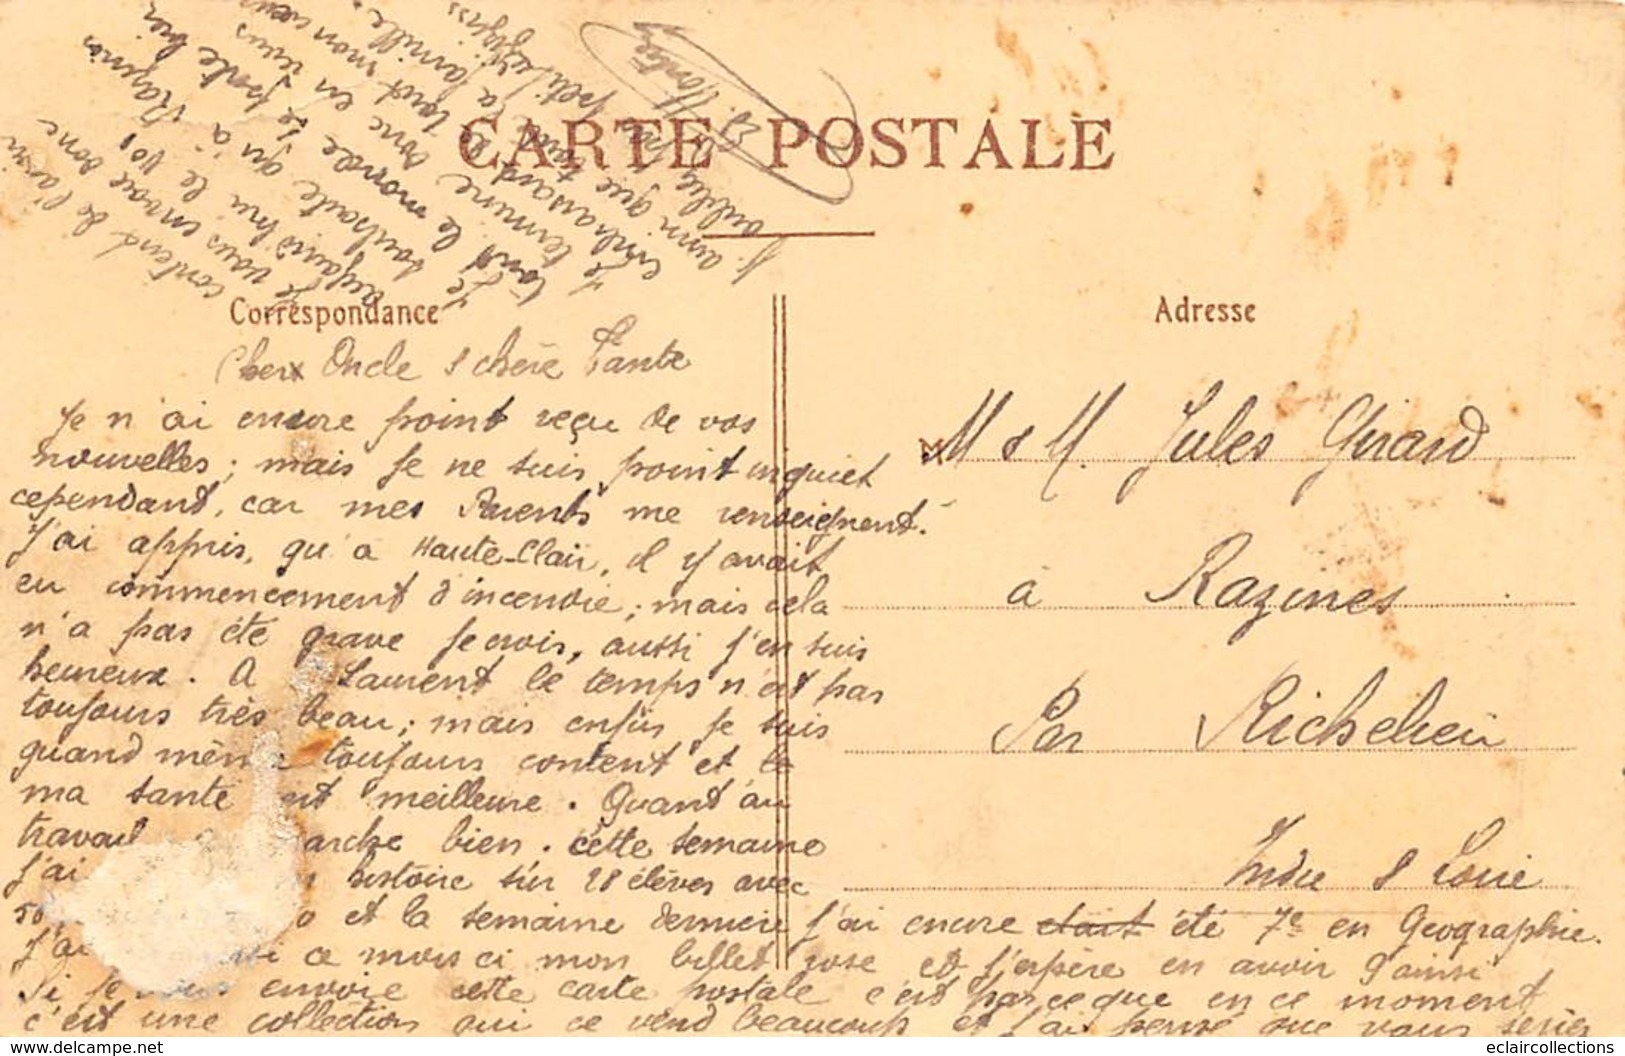 CARTE POSTALE
Correspondance
Adresse
Cher Oncle & chère Tante
Je n'ai encore point reçu de vos
nouvelles; mais je ne suis point inquiet
cependant, car mes Parents me renseignent.
J'ai appris, qu'à Haute-Clair, il y avait
eu commencement d'incendie; mais cela
n'a pas été grave je crois, aussi j'en suis
heureux. A St Laurent le temps n'est pas
toujours très beau; mais enfin je suis
quand même toujours content et la
ma santé est meilleure. Quant au
travail marche bien. cette semaine
j'ai histoire sur 28 élèves avec
et la semaine dernière j'ai encore était été 7e en Geographie.
J'ai ce mois ci mon billet rose et j'espère en avoir ainsi
Si je vous envoie cette carte postale c'est parceque en ce moment
c'est une collection qui se vend beaucoup et j'ai pensé que vous seriez
content de l'avoir
Je vous envoie donc
aujourd'hui le
souhaite qu'à Razines
tout le monde se porte bien
Je termine en vous
embrassant de tout mon cœur
ainsi que toute la famille.
M & M. Jules Girard
à Razines
Par Richelieu
Indre & Loire
delcampe.net
eclaircollections